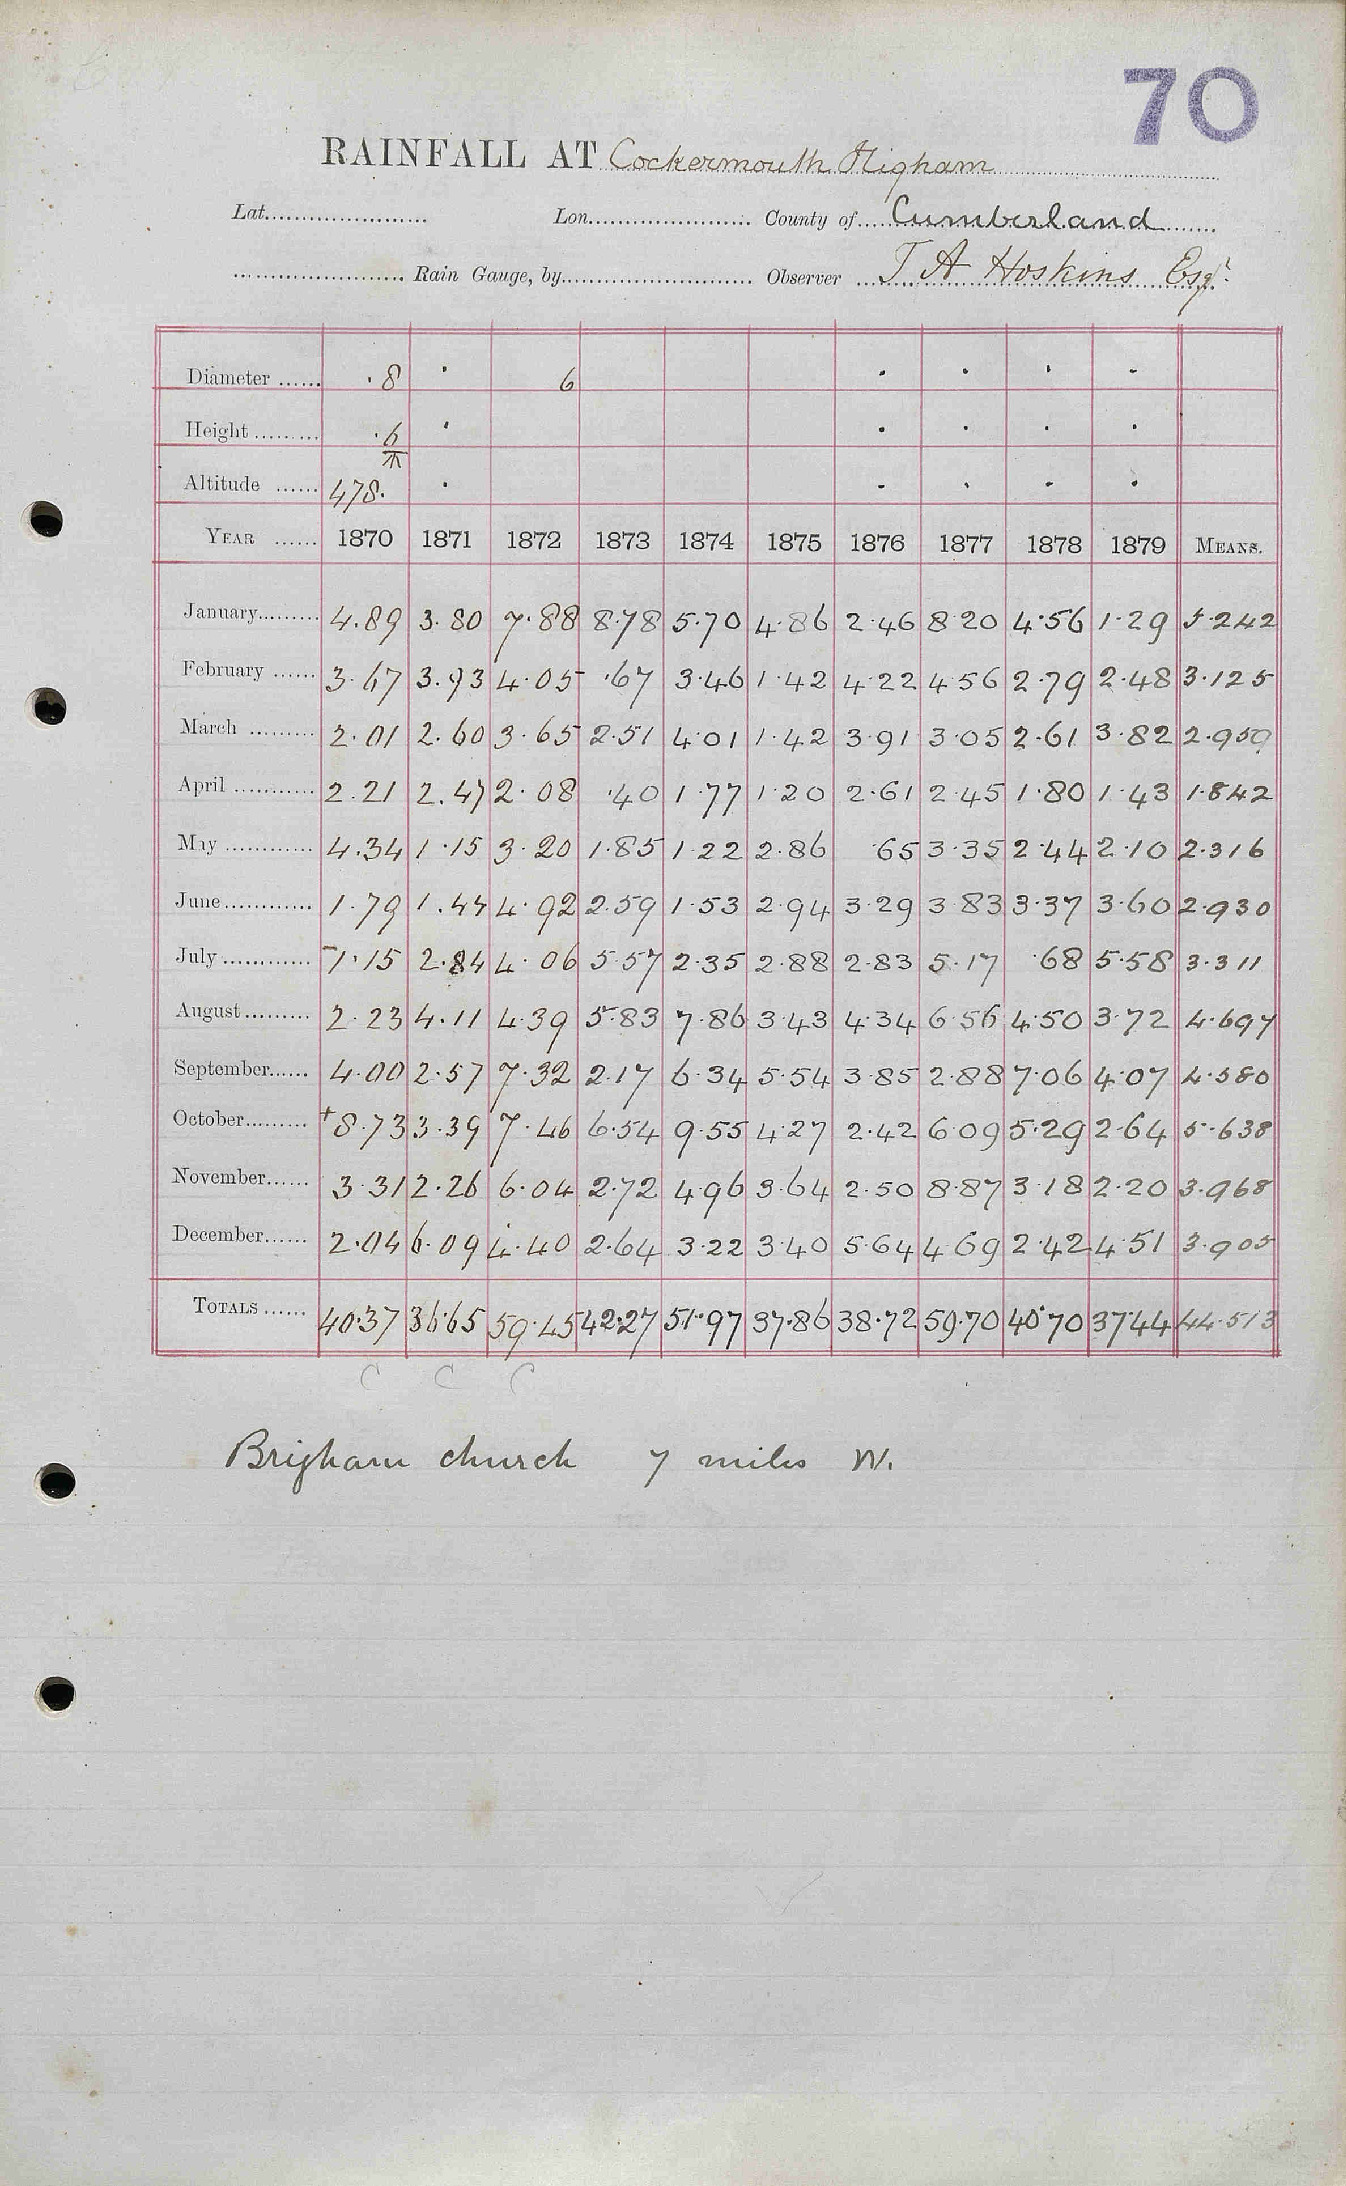 70
RAINFALL AT Cockermouth Higham
Lat. Lon. County of Cumberland
Rain Gauge, by Observer T A Hoskins Esqr.
Diameter 8 · 6 · · · ·
Height ·6 · · · · ·
Altitude 478. · · · · ·
YEAR 1870 1871 1872 1873 1874 1875 1876 1877 1878 1879 MEANS.
January 4.89 3.80 7.88 8.78 5.70 4.86 2.46 8.20 4.56 1.29 5.242
February 3.67 3.93 4.05 .67 3.46 1.42 4.22 4.56 2.79 2.48 3.125
March 2.01 2.60 3.65 2.51 4.01 1.42 3.91 3.05 2.61 3.82 2.959
April 2.21 2.47 2.08 .40 1.77 1.20 2.61 2.45 1.80 1.43 1.842
May 4.34 1.15 3.20 1.85 1.22 2.86 .65 3.35 2.44 2.10 2.316
June 1.79 1.44 4.92 2.59 1.53 2.94 3.29 3.83 3.37 3.60 2.930
July 1.15 2.84 4.06 5.57 2.35 2.88 2.83 5.17 .68 5.58 3.311
August 2.23 4.11 4.39 5.83 7.86 3.43 4.34 6.56 4.50 3.72 4.697
September 4.00 2.57 7.32 2.17 6.34 5.54 3.85 2.88 7.06 4.07 4.580
October +8.73 3.39 7.46 6.54 9.55 4.27 2.42 6.09 5.29 2.64 5.638
November 3.31 2.26 6.04 2.72 4.96 3.64 2.50 8.87 3.18 2.20 3.968
December 2.04 6.09 4.40 2.64 3.22 3.40 5.64 4.69 2.42 4.51 3.905
TOTALS 40.37 36.65 59.45 42.27 51.97 37.86 38.72 59.70 40.70 37.44 44.513
C C C
Brigham church 7 miles W.